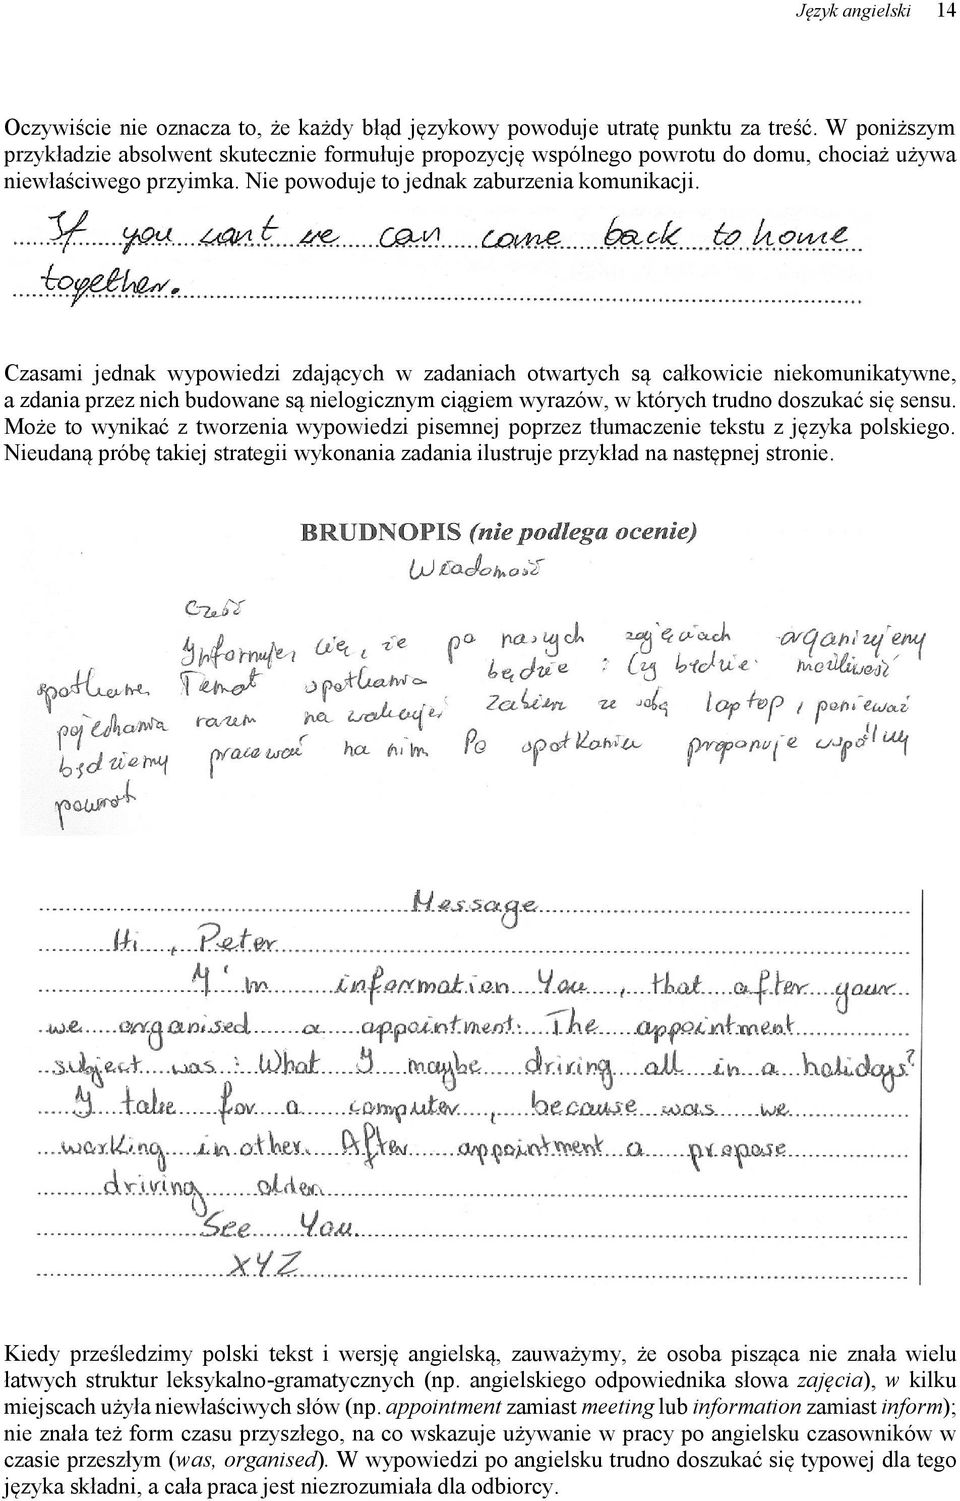 Język angielski 14
Oczywiście nie oznacza to, że każdy błąd językowy powoduje utratę punktu za treść. W poniższym
przykładzie absolwent skutecznie formułuje propozycję wspólnego powrotu do domu, chociaż używa
niewłaściwego przyimka. Nie powoduje to jednak zaburzenia komunikacji.
If you want we can come back to home
together.
Czasami jednak wypowiedzi zdających w zadaniach otwartych są całkowicie niekomunikatywne,
a zdania przez nich budowane są nielogicznym ciągiem wyrazów, w których trudno doszukać się sensu.
Może to wynikać z tworzenia wypowiedzi pisemnej poprzez tłumaczenie tekstu z języka polskiego.
Nieudaną próbę takiej strategii wykonania zadania ilustruje przykład na następnej stronie.
BRUDNOPIS (nie podlega ocenie)
Wiadomość
Cześć
Informuję cię, że po naszych zajęciach organizujemy
spotkanie. Temat spotkania będzie : Czy będzie możliwość
pojechania razem na wakacje. Zabiorę ze sobą laptop, ponieważ
będziemy pracować na nim. Po spotkaniu proponuję wspólny
powrot
Message
Hi, Peter
I'm information You, that after your
we organised a appointment. The appointment
subject was : What I maybe driving all in a holidays?
I take for a computer, because was we
working in other. After appointment a propose
driving olden
See You.
XYZ
Kiedy prześledzimy polski tekst i wersję angielską, zauważymy, że osoba pisząca nie znała wielu
łatwych struktur leksykalno-gramatycznych (np. angielskiego odpowiednika słowa zajęcia), w kilku
miejscach użyła niewłaściwych słów (np. appointment zamiast meeting lub information zamiast inform);
nie znała też form czasu przyszłego, na co wskazuje używanie w pracy po angielsku czasowników w
czasie przeszłym (was, organised). W wypowiedzi po angielsku trudno doszukać się typowej dla tego
języka składni, a cała praca jest niezrozumiała dla odbiorcy.